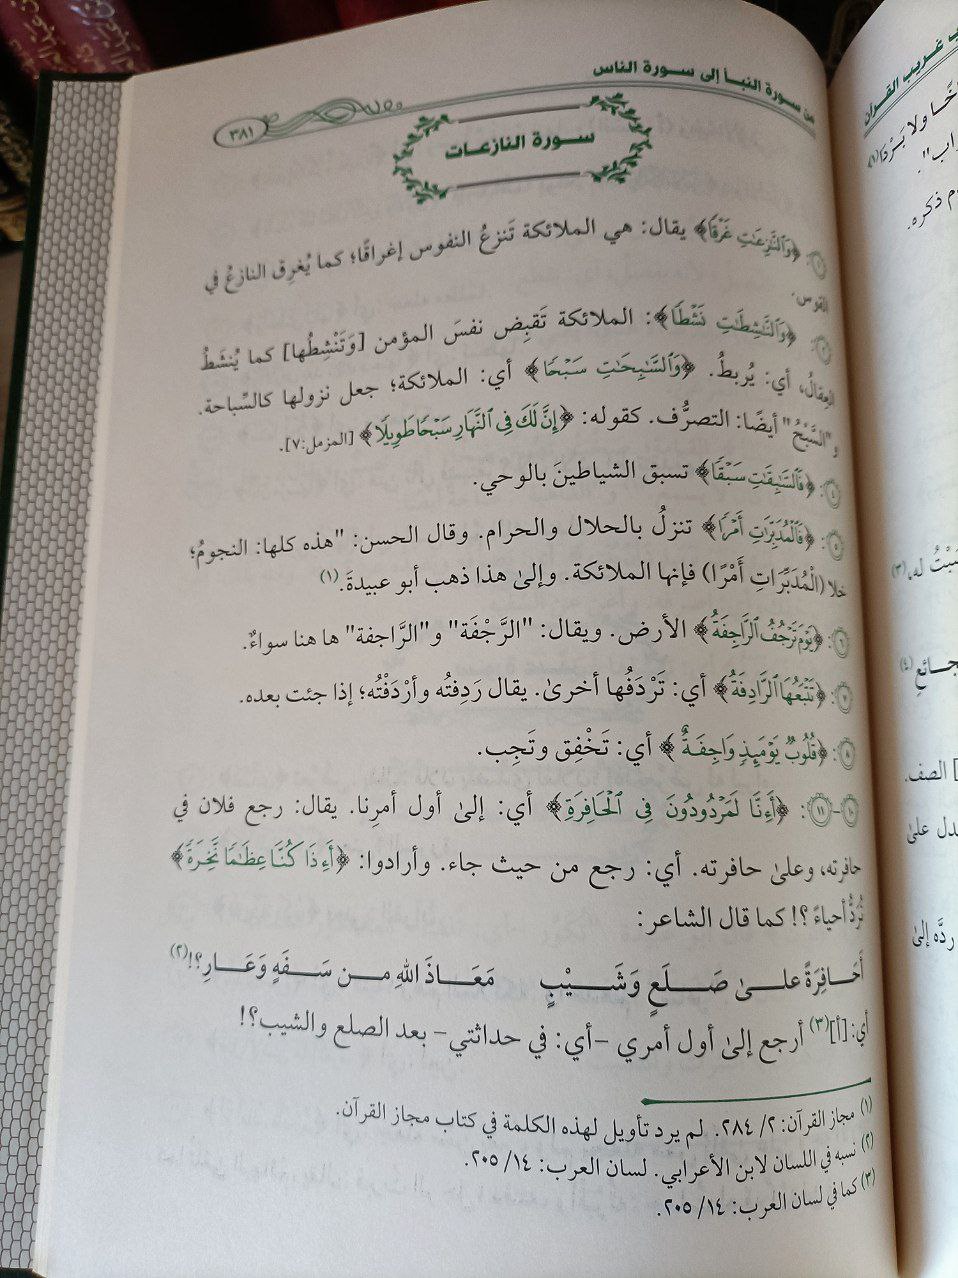 من سورة النبأ إلى سورة الناس
٣٨١
سورة النازعات
١: ﴿وَٱلنَّٰزِعَٰتِ غَرْقًا﴾ يقال: هي الملائكة تَنزعُ النفوس إغراقًا؛ كما يُغرِق النازعُ في
القوس.
٢: ﴿وَٱلنَّٰشِطَٰتِ نَشْطًا﴾: الملائكة تَقبِض نفسَ المؤمن [وَتَنْشِطُها] كما يُنشَطُ
العِقالُ، أي: يُربطُ. ﴿وَٱلسَّٰبِحَٰتِ سَبْحًا﴾ أي: الملائكة؛ جعل نزولها كالسِّباحة.
و "السَّبْحُ" أيضًا: التصرُّف. كقوله: ﴿إِنَّ لَكَ فِى ٱلنَّهَارِ سَبْحًا طَوِيلًا﴾ [المزمل:٧].
٤: ﴿فَٱلسَّٰبِقَٰتِ سَبْقًا﴾ تسبق الشياطينَ بالوحي.
٥: ﴿فَٱلْمُدَبِّرَٰتِ أَمْرًا﴾ تنزلُ بالحلال والحرام. وقال الحسن: "هذه كلها: النجومُ؛
خلا (الْمُدَبِّرَاتِ أَمْرًا) فإنها الملائكة. وإلىٰ هذا ذهب أبو عبيدةَ.(١)
٦: ﴿يَوْمَ تَرْجُفُ ٱلرَّاجِفَةُ﴾ الأرض. ويقال: "الرَّجْفَة" و"الرَّاجفة" ها هنا سواءٌ.
٧: ﴿تَتْبَعُهَا ٱلرَّادِفَةُ﴾ أي: تَرْدَفُها أخرىٰ. يقال رَدِفتُه وأرْدَفْتُه؛ إذا جئت بعده.
٨: ﴿قُلُوبٌ يَوْمَئِذٍ وَاجِفَةٌ﴾ أي: تَخْفِق وتَجِب.
١٠-١١: ﴿أَءِنَّا لَمَرْدُودُونَ فِى ٱلْحَافِرَةِ﴾ أي: إلىٰ أول أمرِنا. يقال: رجع فلان في
حافرته، وعلىٰ حافرته. أي: رجع من حيث جاء. وأرادوا: ﴿أَءِذَا كُنَّا عِظَٰمًا نَّخِرَةً﴾
نُرَدُّ أحياءً ؟! كما قال الشاعر:
أَحَافِرَةً علىٰ صَلَعٍ وَشَيْبٍ مَعَاذَ اللهِ من سَفَهٍ وَعَارِ؟!(٢)
أي: [أ](٣) أرجع إلىٰ أول أمري -أي: في حداثتي- بعد الصلع والشيب؟!
(١) مجاز القرآن: ٢/ ٢٨٤. لم يرد تأويل لهذه الكلمة في كتاب مجاز القرآن.
(٢) نسبه في اللسان لابن الأعرابي. لسان العرب: ١٤/ ٢٠٥.
(٣) كما في لسان العرب: ١٤/ ٢٠٥.
غريب القرآن
ولا بَرْدًا(١)
م ذكره.
له،(٣)
(٤)
الصف.
دل علىٰ
ردَّه إلىٰ